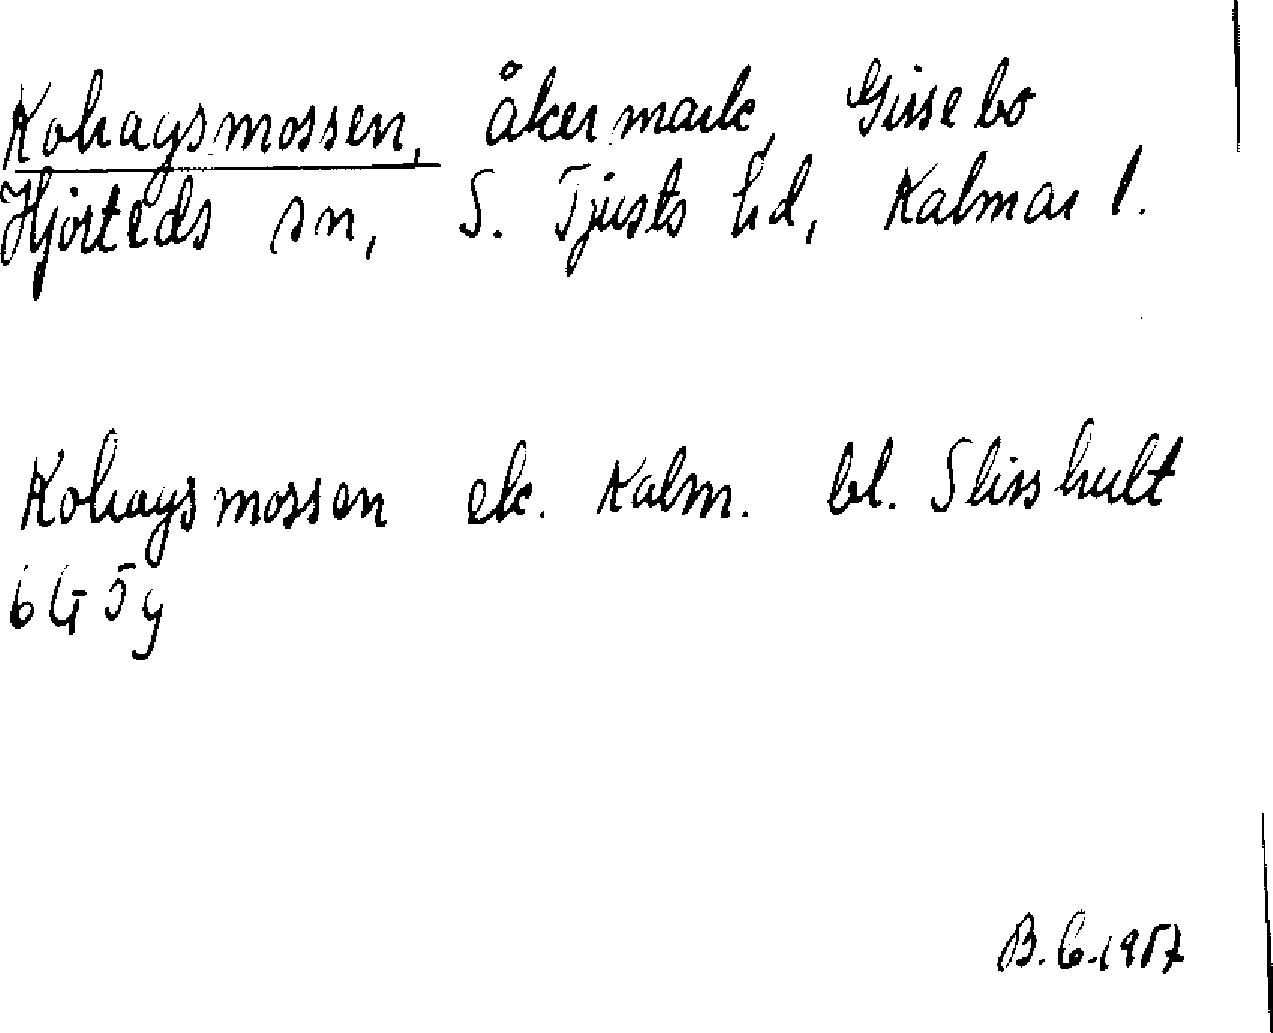 Kohagsmossen, åkermark, Gissebo
Hjorteds sn, S. Tjusts hd, Kalmar l.
Kohagsmossen ek. Kalm. bl. Slisshult
6G 5g
B. C. 1957